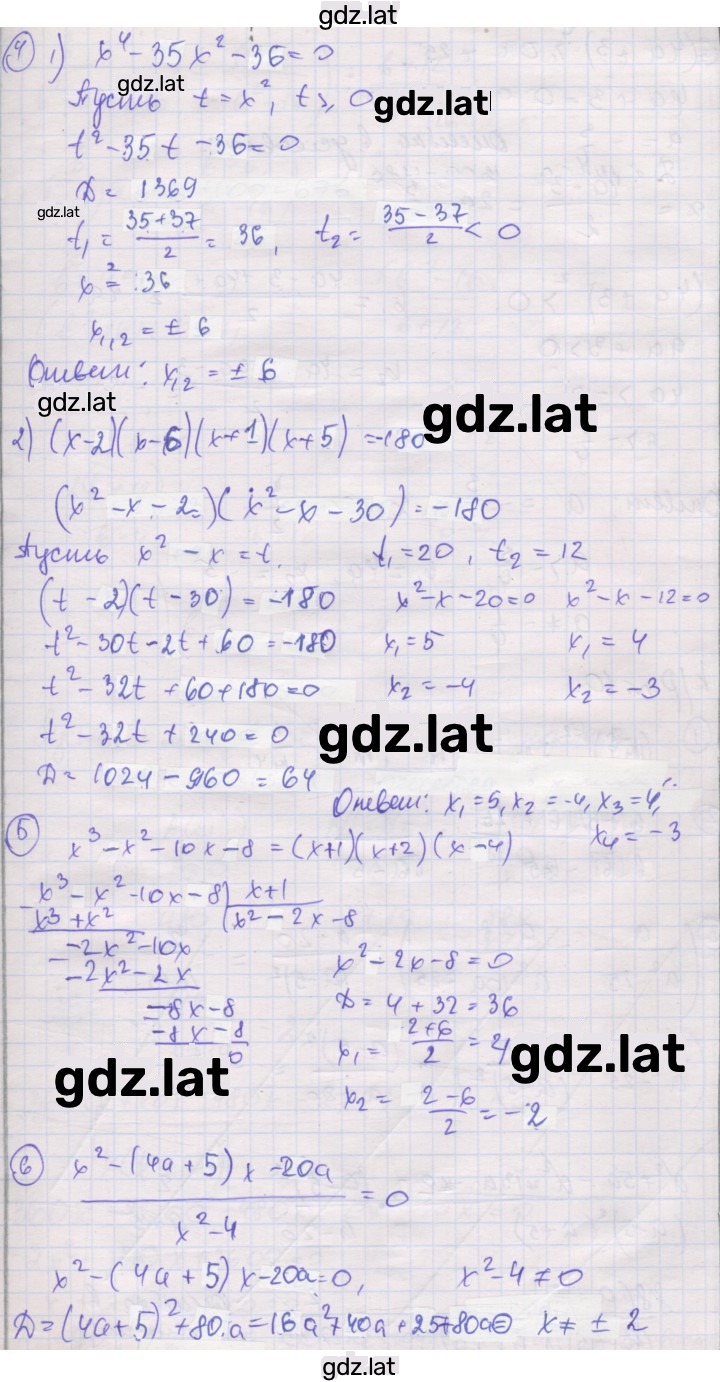 gdz.lat
4 1) x⁴ - 35x² - 36 = 0
gdz.lat
Пусть t = x², t ≥ 0 gdz.lat
t² - 35t - 36 = 0
Д = 1369
gdz.lat
t₁ = (35+37)/2 = 36, t₂ = (35-37)/2 < 0
x² = 36
x₁,₂ = ± 6
Ответ: x₁,₂ = ± 6
gdz.lat gdz.lat
2) (x-2)(x-6)(x+1)(x+5) = -180
(x² - x - 2)(x² - x - 30) = -180
Пусть x² - x = t. t₁ = 20, t₂ = 12
(t - 2)(t - 30) = -180 x² - x - 20 = 0 x² - x - 12 = 0
t² - 30t - 2t + 60 = -180 x₁ = 5 x₁ = 4
t² - 32t + 60 + 180 = 0 x₂ = -4 x₂ = -3
t² - 32t + 240 = 0 gdz.lat
Д = 1024 - 960 = 64
Ответ: x₁ = 5, x₂ = -4, x₃ = 4,
x₄ = -3
5 x³ - x² - 10x - 8 = (x+1)(x+2)(x-4)
x³ - x² - 10x - 8 | x+1
x³ + x² x² - 2x - 8
-2x² - 10x
-2x² - 2x
-8x - 8
-8x - 8
0
x² - 2x - 8 = 0
Д = 4 + 32 = 36
x₁ = (2+6)/2 = 4 gdz.lat
gdz.lat
x₂ = (2-6)/2 = -2
6 (x² - (4a+5)x - 20a)/(x² - 4) = 0
x² - (4a+5)x - 20a = 0, x² - 4 ≠ 0
Д = (4a+5)² + 80a = 16a² + 40a + 25 + 80a = x ≠ ± 2
gdz.lat